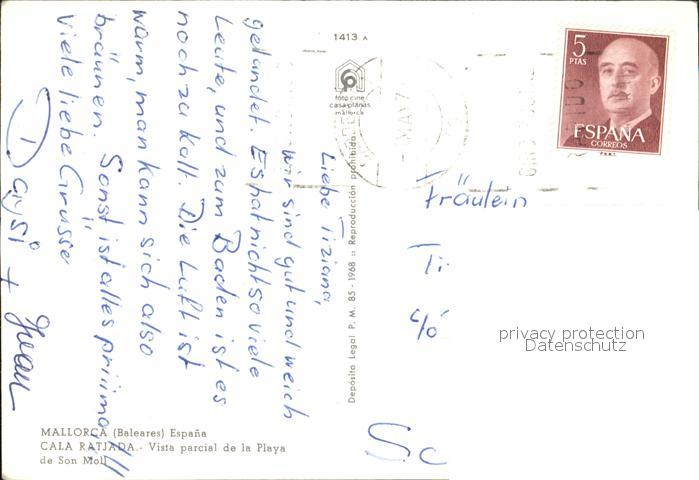 Liebe Tiziana,
wir sind gut und weich
gelandet. Es hat nicht so viele
Leute, und zum Baden ist es
noch zu kalt. Die Luft ist
warm, man kann sich also
bräunen. Sonst ist alles priiima!!
Viele liebe Grüsse
Daysi + Juan
1413 A
foto cine
casa planas
mallorca
Depósito Legal P. M. 85 - 1968 :: Reproducción prohibida
5
PTAS
ESPAÑA
CORREOS
Fräulein
Ti
c/o
privacy protection
Datenschutz
MALLORCA (Baleares) España
CALA RATJADA.- Vista parcial de la Playa
de Son Moll